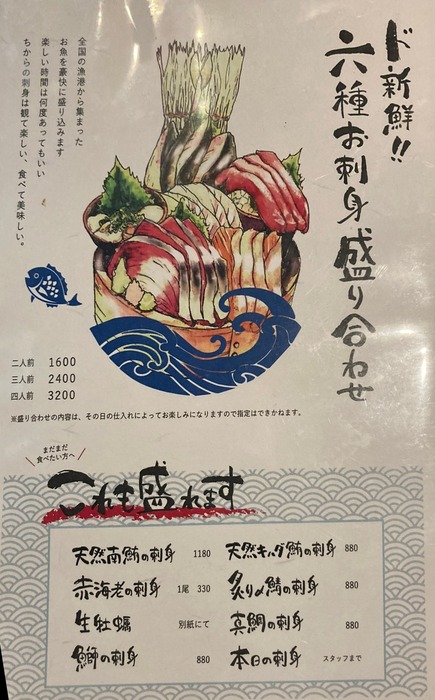 ド新鮮!!
六種お刺身盛り合わせ
全国の漁港から集まった
お魚を豪快に盛り込みます
楽しい時間は何度あってもいい
ちからの刺身は観て楽しい、食べて美味しい。
二人前 1600
三人前 2400
四人前 3200
※盛り合わせの内容は、その日の仕入れによってお楽しみになりますので指定はできかねます。
まだまだ
食べたい方へ
これも盛れます
天然南鮪の刺身 1180
赤海老の刺身 1尾 330
生牡蠣 別紙にて
鰤の刺身 880
天然キング鮪の刺身 880
炙り〆鯖の刺身 880
真鯛の刺身 880
本日の刺身 スタッフまで